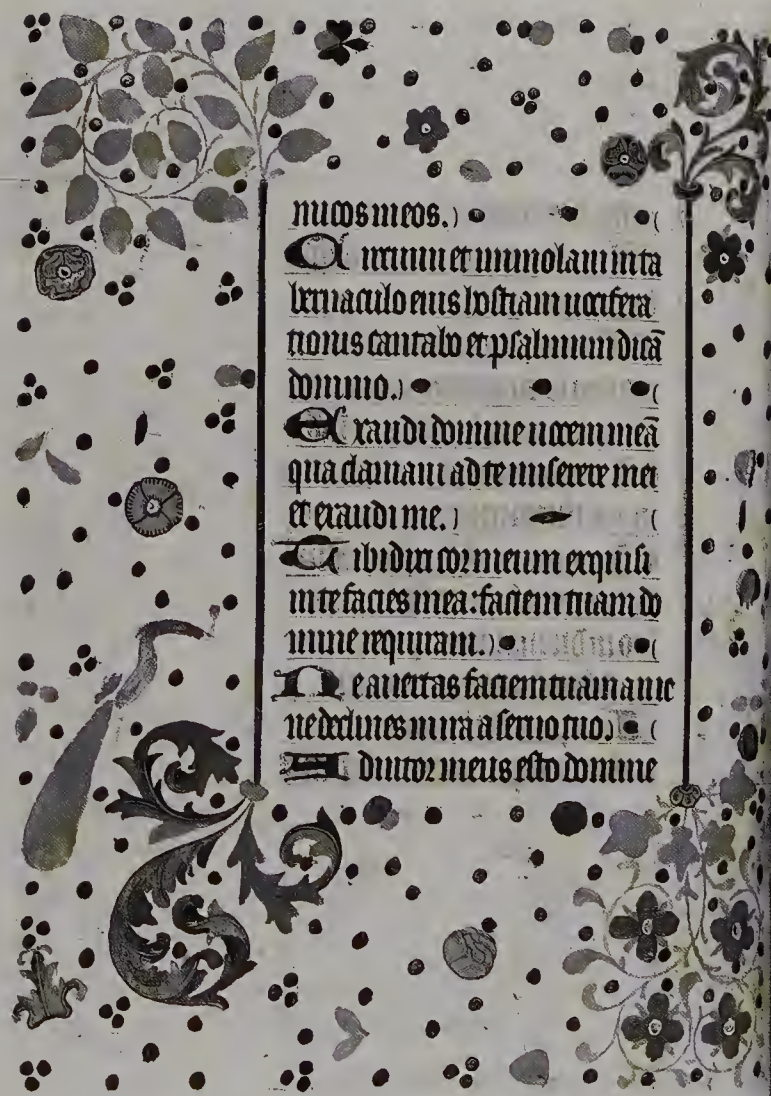 micos meos.
Circuiui et immolaui in ta
bernaculo eius hostiam uocifera
tionis cantabo et psalmum dicā
domino.
Exaudi domine uocem meā
qua clamaui ad te miserere mei
et exaudi me.
Tibi dixit cor meum exquisi
uit te facies mea: faciem tuam do
mine requiram.
Ne auertas faciem tuam a me
ne declines in ira a seruo tuo.
Adiutor meus esto domine